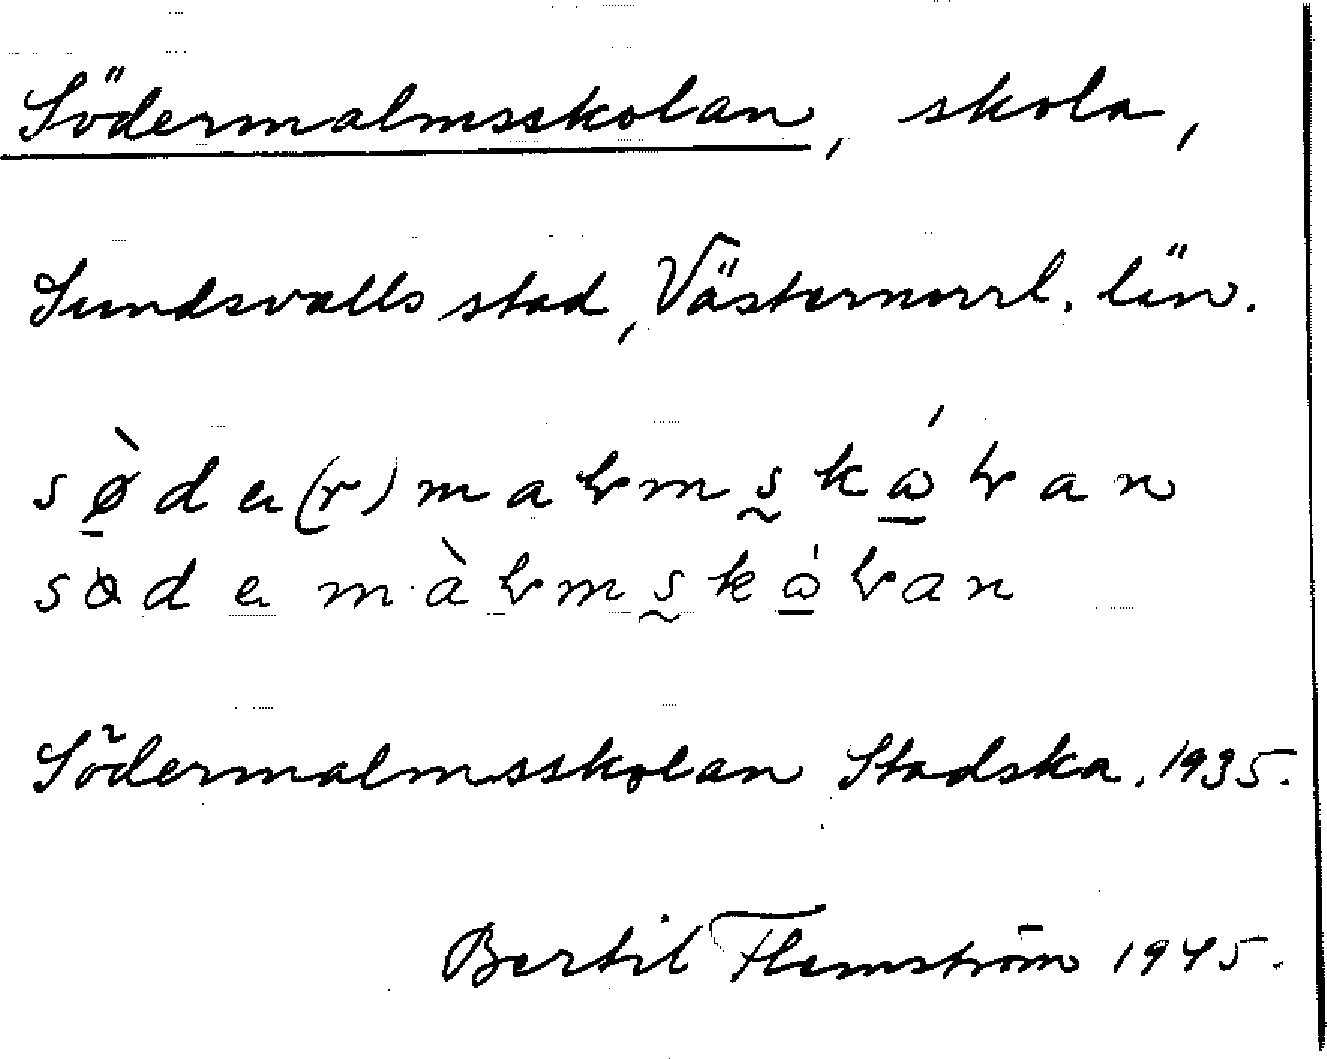 Södermalmsskolan, skola,
Sundsvalls stad, Västernorrl. län.
sø̀de(r)malmskɷ́lan
sødemàlmskɷ́lan
Södermalmsskolan Stadska. 1935.
Bertil Flemström 1945.